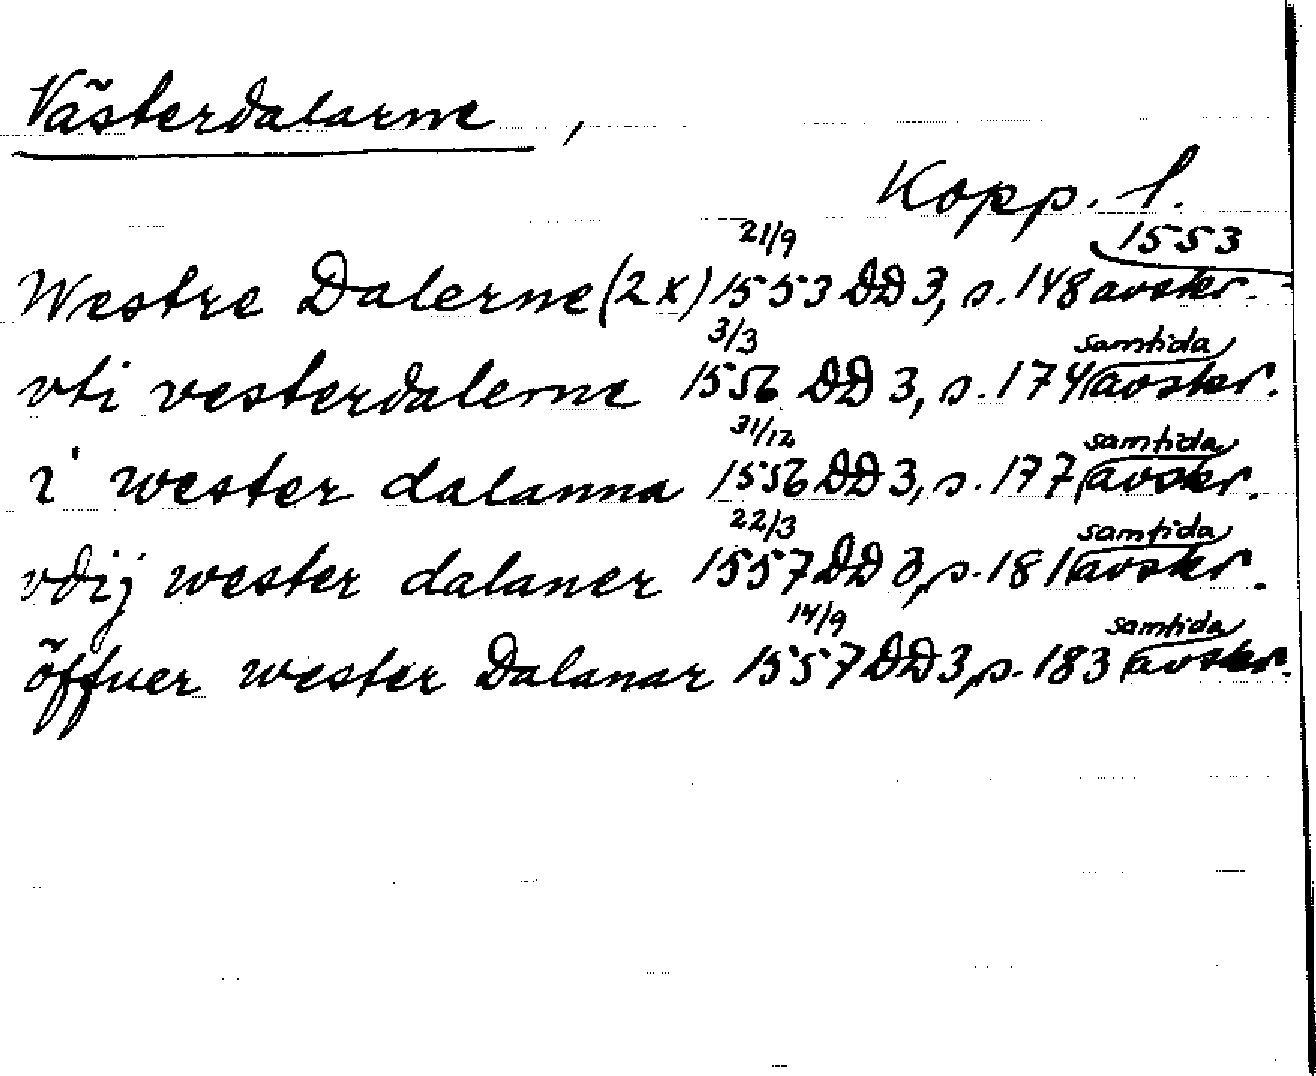 Västerdalarne,
Kopp. l.
21/9 1553
Westre Dalerne (2x) 1553 DD 3, s. 148 avskr.
3/3 samtida
vti vesterdalerne 1556 DD 3, s. 174 avskr.
31/12 samtida
i wester dalanna 1556 DD 3, s. 177 avskr.
22/3 samtida
vdij wester dalaner 1557 DD 3, s. 181 avskr.
14/9 samtida
öffuer wester Dalanar 1557 DD 3, s. 183 avskr.